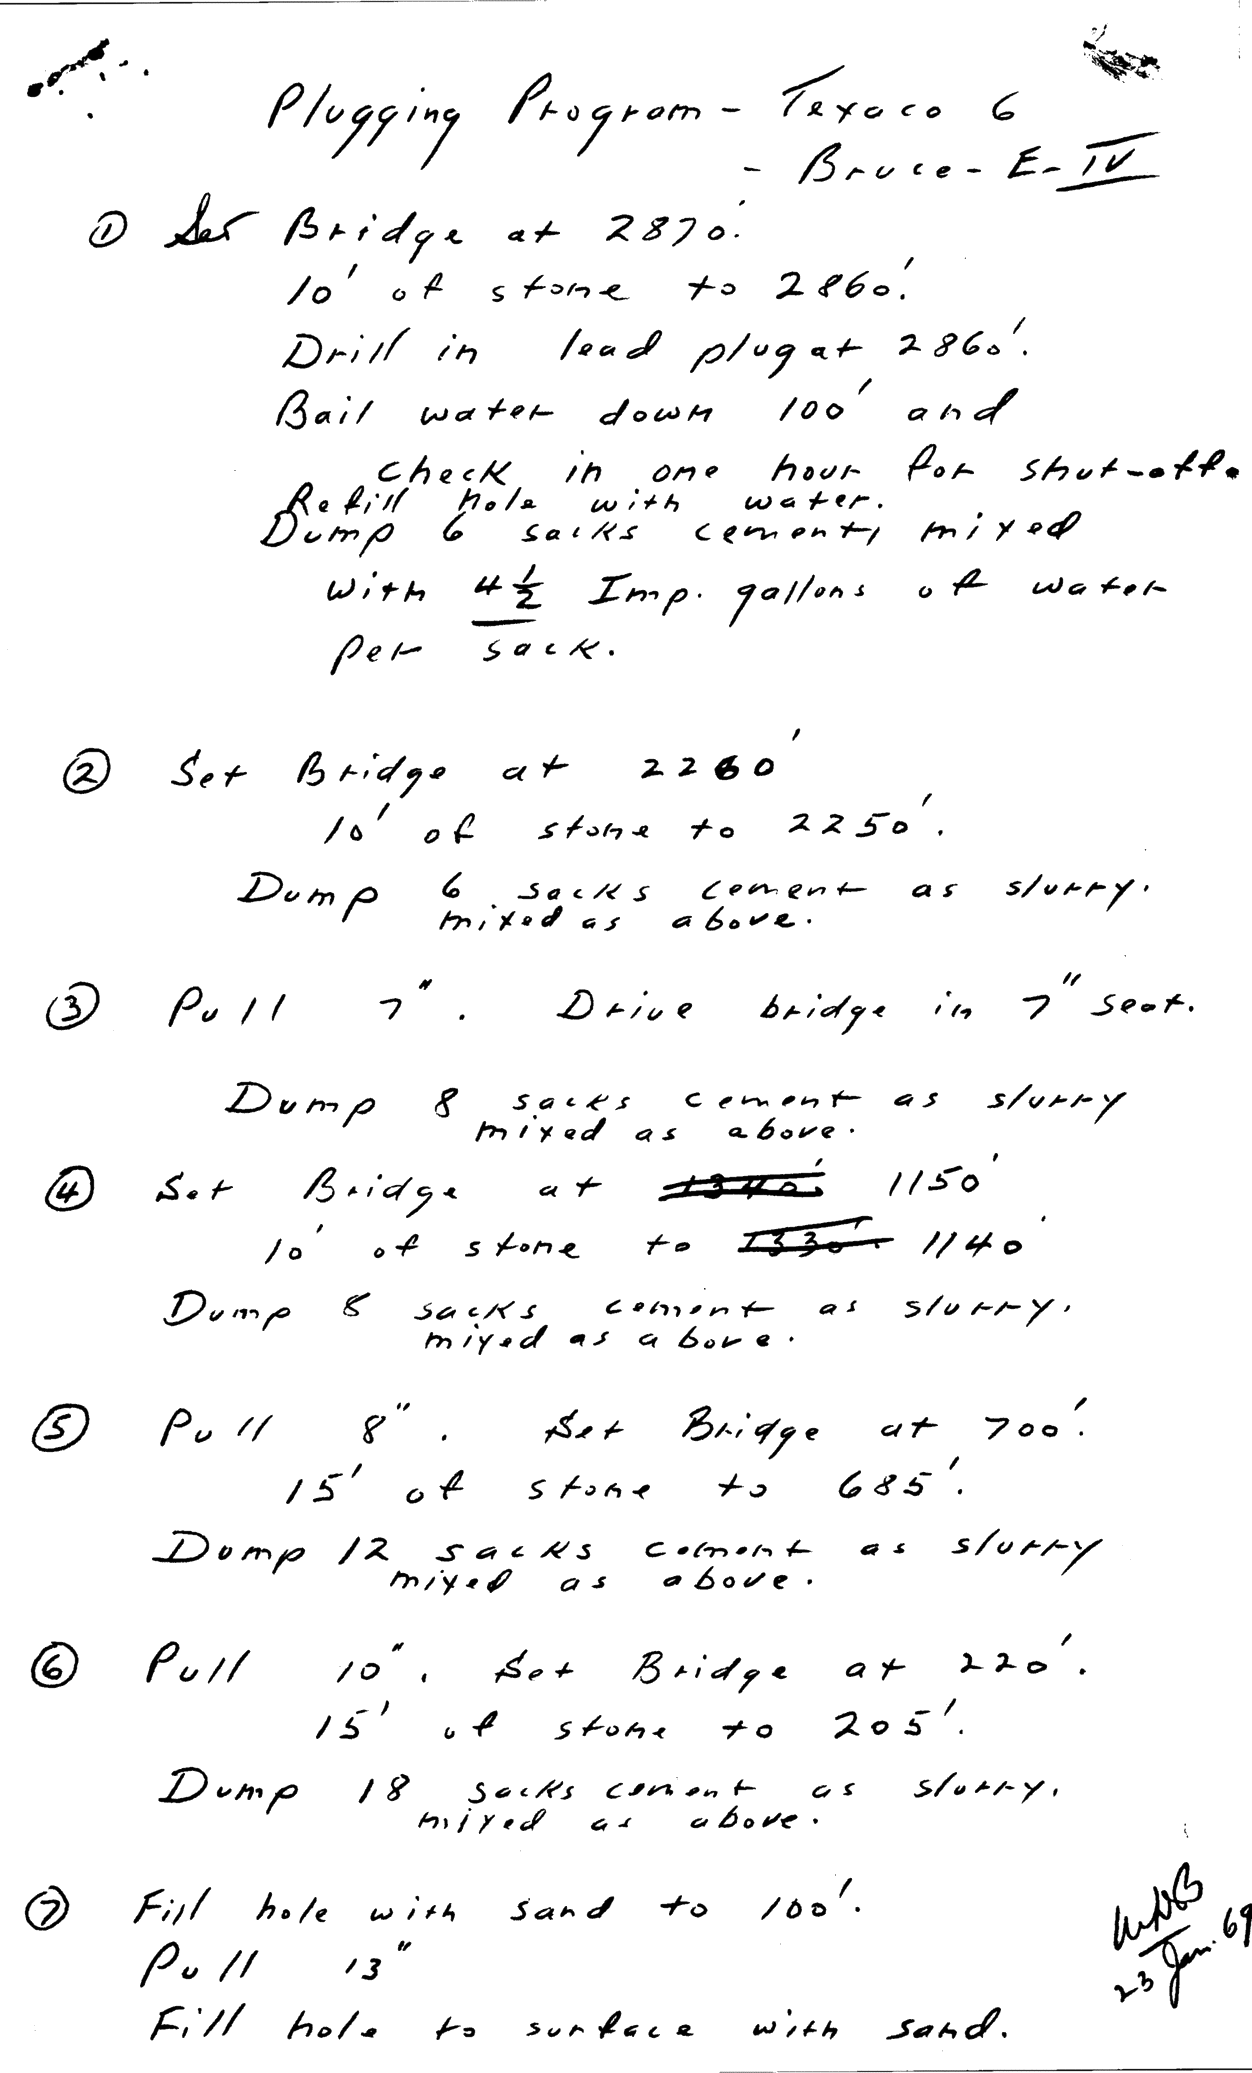 Plugging Program - Texaco 6
- Bruce - E - IV
① Set Bridge at 2870'.
10' of stone to 2860'.
Drill in lead plug at 2860'.
Bail water down 100' and
check in one hour for shut-off.
Refill hole with water.
Dump 6 sacks cement, mixed
with 4 1/2 Imp. gallons of water
per sack.
② Set Bridge at 2260'
10' of stone to 2250'.
Dump 6 sacks cement as slurry.
mixed as above.
③ Pull 7". Drive bridge in 7" seat.
Dump 8 sacks cement as slurry
mixed as above.
④ Set Bridge at 1340' 1150'
10' of stone to 1330' 1140'
Dump 8 sacks cement as slurry.
mixed as above.
⑤ Pull 8". Set Bridge at 700'.
15' of stone to 685'.
Dump 12 sacks cement as slurry
mixed as above.
⑥ Pull 10". Set Bridge at 220'.
15' of stone to 205'.
Dump 18 sacks cement as slurry.
mixed as above.
⑦ Fill hole with sand to 100'.
Pull 13"
Fill hole to surface with sand.
23 Jan. 69